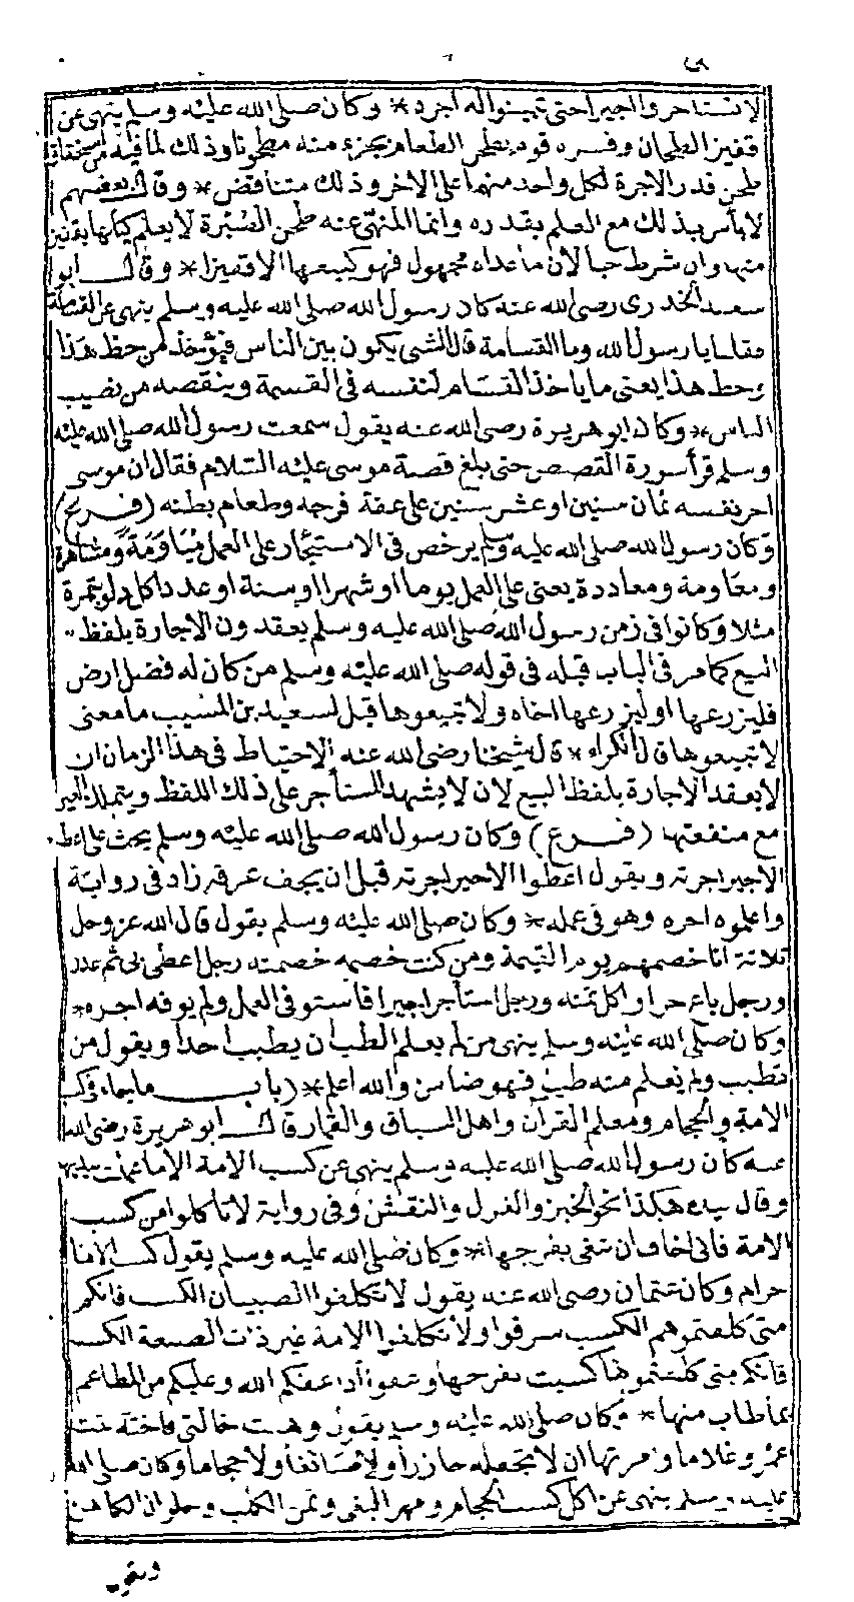 لا تستاجروا الاجير حتى تبينوا له اجره * وكان صلى الله عليه وسلم ينهى عن
قفيز الطحان وفسره قوم بطحن الطعام بجزء منه مطحونا وذلك لما فيه من استحقاق
طحن قدر الاجرة لكل واحد منهما على الاخر وذلك متناقض * وقال بعضهم
لا باس بذلك مع العلم بقدره وانما المنهى عنه طحن الصبرة لا يعلم كيلها بقفيز
منها وان شرط حبا لان ما عداه مجهول فهو كبيعها الا قفيزا * وقال ابو
سعيد الخدرى رضى الله عنه كان رسول الله صلى الله عليه وسلم ينهى عن القسامة
فقلنا يا رسول الله وما القسامة قال الشى يكون بين الناس فيؤخذ من حظ هذا
وحظ هذا يعنى ما ياخذ القسام لنفسه فى القسمة وينقصه من نصيب
الناس * وكان ابو هريرة رضى الله عنه يقول سمعت رسول الله صلى الله عليه
وسلم قرأ سورة القصص حتى بلغ قصة موسى عليه السلام فقال ان موسى
اجر نفسه ثمان سنين او عشر سنين على عفة فرجه وطعام بطنه (فرع)
وكان رسول الله صلى الله عليه وسلم يرخص فى الاستئجار على العمل مياومة ومشاهرة
ومعاومة ومعاددة يعنى على العمل يوما او شهرا او سنة او عددا كل دلو بتمرة
مثلا وكانوا فى زمن رسول الله صلى الله عليه وسلم يعقدون الاجارة بلفظ
البيع كما مر فى الباب قبله فى قوله صلى الله عليه وسلم من كان له فضل ارض
فليزرعها او ليزرعها اخاه ولا تبيعوها قيل لسعيد بن المسيب ما معنى
لا تبيعوها قال الكراء * قال شيخنا رضى الله عنه الاحتياط فى هذا الزمان ان
لا يعقد الاجارة بلفظ البيع لان لا يشهد المستأجر على ذلك اللفظ ويتملك العين
مع منفعتها (فرع) وكان رسول الله صلى الله عليه وسلم يحث على اعطاء
الاجير اجرته ويقول اعطوا الاجير اجرته قبل ان يجف عرقه زاد فى رواية
واعلموه اجره وهو فى عمله * وكان صلى الله عليه وسلم يقول قال الله عز وجل
ثلاثة انا خصمهم يوم القيمة ومن كنت خصمه خصمته رجل اعطى بى ثم غدر
ورجل باع حرا واكل ثمنه ورجل استأجر اجيرا فاستوفى العمل ولم يوفه اجره *
وكان صلى الله عليه وسلم ينهى من لم يعلم الطب ان يطبب احدا ويقول من
تطبب ولم يعلم منه طب فهو ضامن والله اعلم * (باب ما جاء فى كسب
الامة والحجام ومعلم القرآن واهل السباق والقمار قال ابو هريرة رضى الله
عنه كان رسول الله صلى الله عليه وسلم ينهى عن كسب الامة الا ما عملت بيديها
وقال بيده هكذا نحو الخبز والغزل والنقش وفى رواية لا تاكلوا من كسب
الامة فانى اخاف ان تبغى بفرجها * وكان صلى الله عليه وسلم يقول كسب الاما
حرام وكان عثمان رضى الله عنه يقول لا تكلفوا الصبيان الكسب فانكم
متى كلفتموهم الكسب سرقوا ولا تكلفوا الامة غير ذات الصنعة الكسب
فانكم متى كلفتموها كسبت بفرجها وعفوا اذا عفكم الله وعليكم من المطاعم
بما طاب منها * وكان صلى الله عليه وسلم يقول وهبت خالتى فاختة بنت
عمرو غلاما وامرتها ان لا تجعله جازرا ولا صائغا ولا حجاما وكان صلى الله
عليه وسلم ينهى عن اكل كسب الحجام ومهر البغى وثمن الكلب وحلوان الكاهن
ويقول